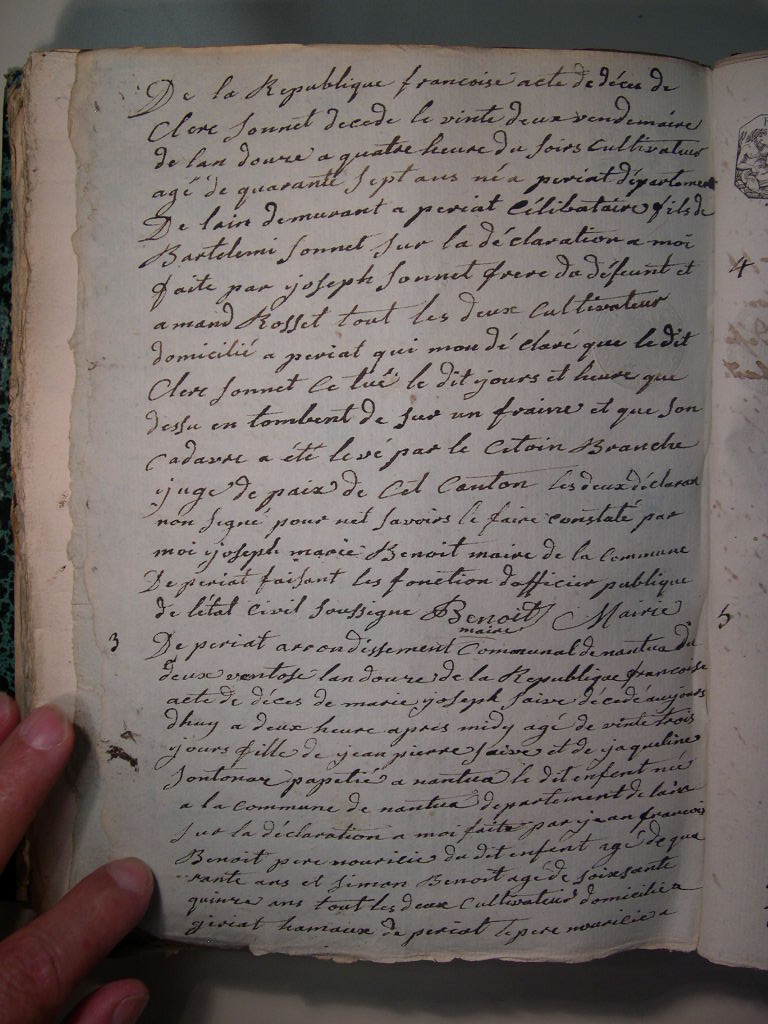 De la Republique francoise acte de déces de
Clerc Sonnet decede le vinte deux vendemaire
de lan douze a quatre heure du soirs Cultivateur
agé de quarante sept ans né a periat départemen
De lain demurant a periat Célibataire fils de
Bartelemi Sonnet sur la déclaration a moi
faite par ijoseph Sonnet frere du défeunt et
amand Rosset tout les deux Cultivateur
domicilié a periat qui mon dé claré que le dit
Clerc Sonnet Ce tué le dit ijours et heure que
dessu en tombent de sur un fraine et que son
Cadavre a été levé par le Citoin Branche
ijuge de paix de Cet Canton les deux déclaran
non signé pour net savoirs le faire constaté par
moi ijoseph marie Benoit maire de la Commune
De periat faisant les fonction dofficier publique
de létat Civil soussigne Benoit Mairie
maire
3 De periat arrondissement Communal de nantua du
deux ventose lan douze de la Republique francoise
acte de déces de marie ijoseph saive décédé aujours
dhuy a deux heure aprés midy agé de vinte trois
ijours fille de ijean pierre saive et de ijaqueline
Sontonax papetié a nantua le dit enfent née
a la Commune de nantua departement de lain
sur la déclaration a moi faite par ijean francois
Benoit pere nouricié du dit enfent agé de qua
rante ans et Simon Benoit agé de soixsante
quinze ans tout les deux Cultivateur domicilié a
giriat hamaux de periat le pere nouricié a
4
5